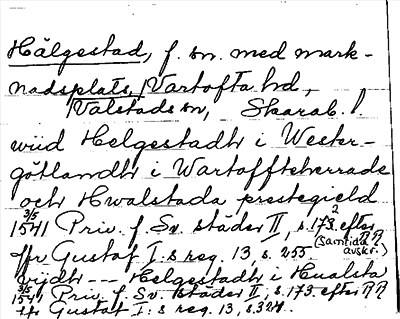 Hälgestad, f. sn. med mark-
nadsplats, Vartofta hd,
Valstads sn, Skarab. l.
wiid Helgestadh i Wester-
götlandh i Wartoffteherrade
och Hwalstada prestegield
3/5 1541 Priv. f. Sv. städer II, s. 173 2 efter RR
(samtida avskr.)
fr Gustaf I:s reg. 13, s. 255.
wijdh --- Helgestadh i Hualsta
3/5 1541 Priv. f. Sv. städer II, s. 173. efter RR
fr Gustaf I:s reg. 13, s. 324.